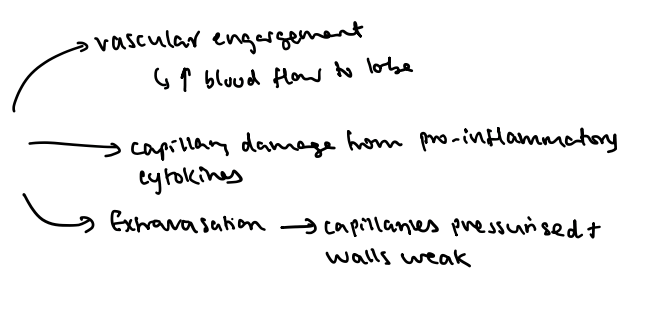 → vascular engargement
↳ ↑ blood flow to lobe
→ capillary damage from pro-inflammatory
cytokines
→ Extravasation → capillaries pressurised +
walls weak